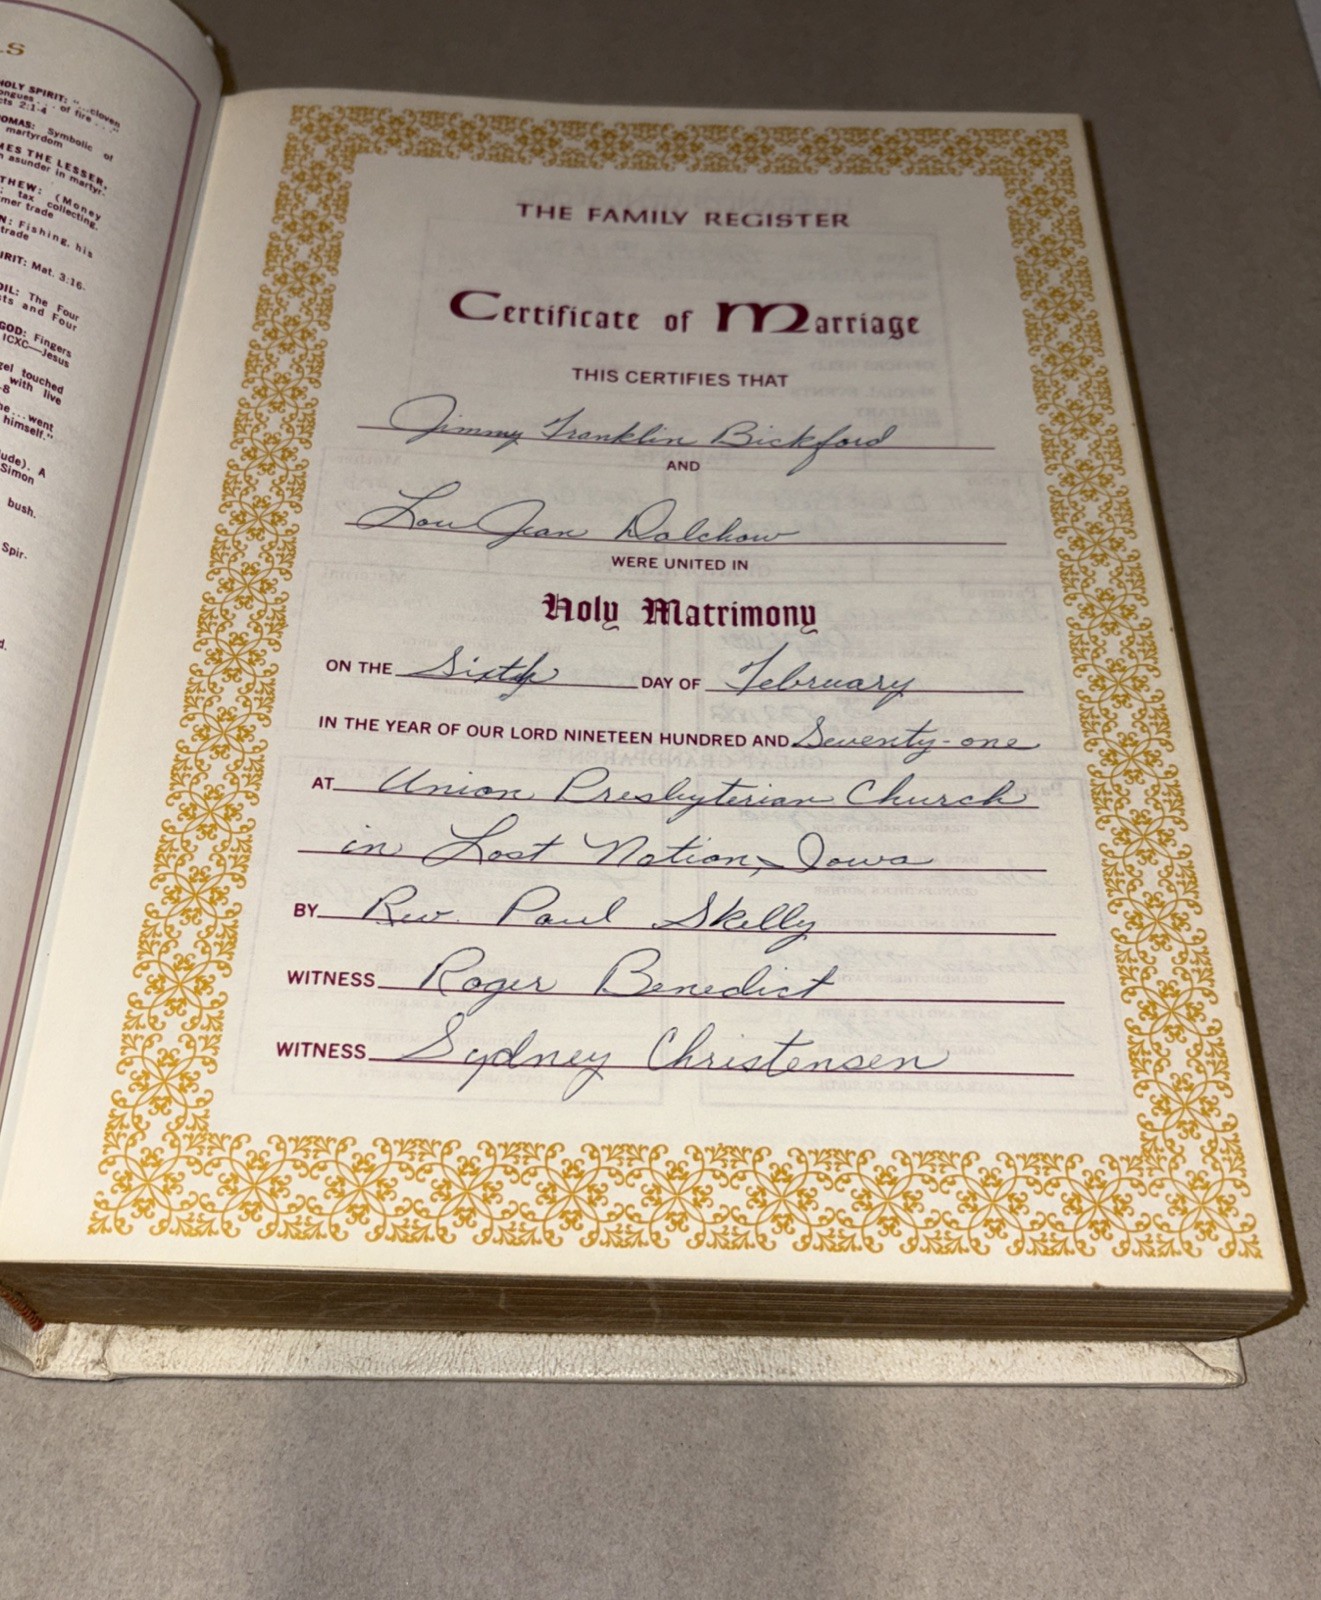 LS
HOLY SPIRIT: "...cloven
tongues . . . of fire . . ."
Acts 2:1-4
THOMAS: Symbolic of
martyrdom
JAMES THE LESSER,
asunder in martyr-
MATTHEW: (Money
tax collecting,
former trade
Fishing, his
trade
SPIRIT: Mat. 3:16-
The Four
and Four
GOD: Fingers
ICXC—Jesus
touched
with live
went
himself."
A
Simon
bush.
Spir-
THE FAMILY REGISTER
Certificate of Marriage
THIS CERTIFIES THAT
Jimmy Franklin Bickford
AND
Lou Jean Dalchow
WERE UNITED IN
Holy Matrimony
ON THE Sixth DAY OF February
IN THE YEAR OF OUR LORD NINETEEN HUNDRED AND Seventy-one
AT Union Presbyterian Church
in Lost Nation, Iowa
BY Rev. Paul Skelly
WITNESS Roger Benedict
WITNESS Sydney Christensen